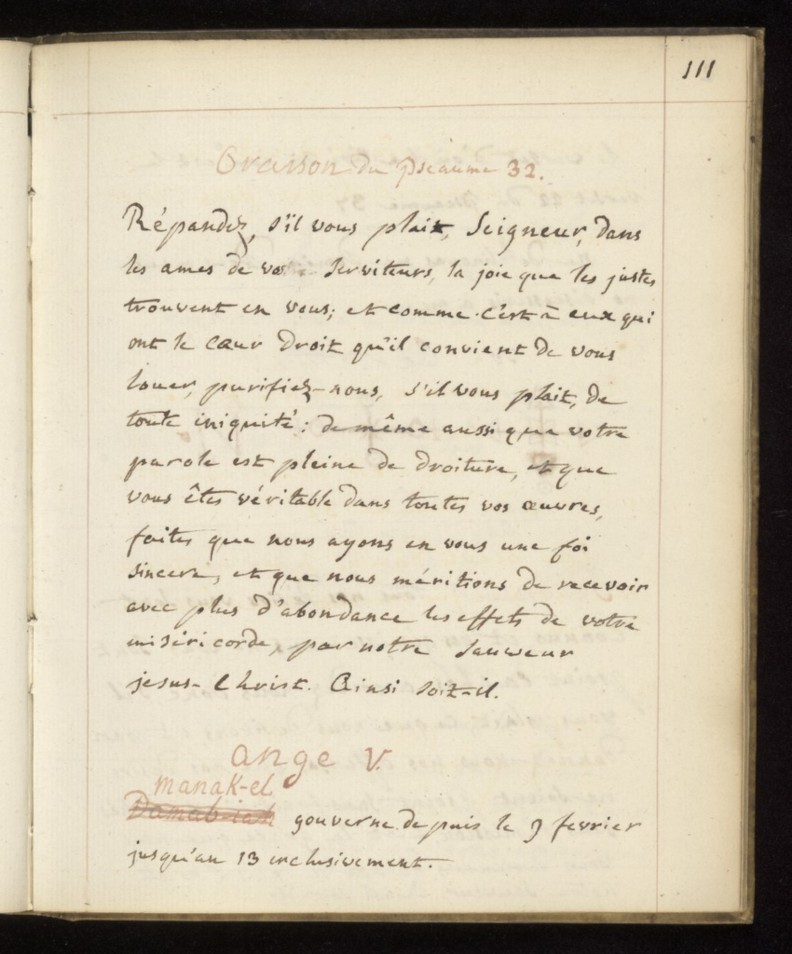 111
Oraison du pseaume 32.
Répandez, s'il vous plait, Seigneur, dans
les ames de vos serviteurs, la joie que les justes
trouvent en vous; et comme c'est à eux qui
ont le cœur droit qu'il convient de vous
louer, purifiez-nous, s'il vous plait, de
toute iniquité: de même aussi que votre
parole est pleine de droiture, et que
vous êtes véritable dans toutes vos œuvres,
faites que nous ayons en vous une foi
sincere, et que nous méritions de recevoir
avec plus d'abondance les effets de votre
miséricorde, par notre Sauveur
jesus-Christ. Ainsi soit-il.
ange V.
manak-el
Damab-iah gouverne depuis le 9 fevrier
jusqu'au 13 inclusivement.